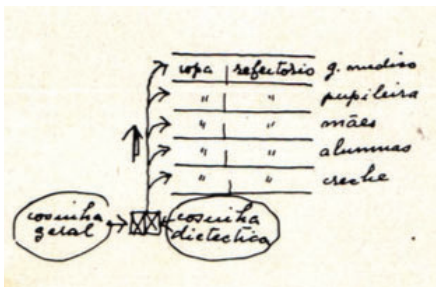 copa refeitorio g. medico
" " pupileira
" " mães
" " alumnas
" " creche
cosinha geral
cosinha dietectica